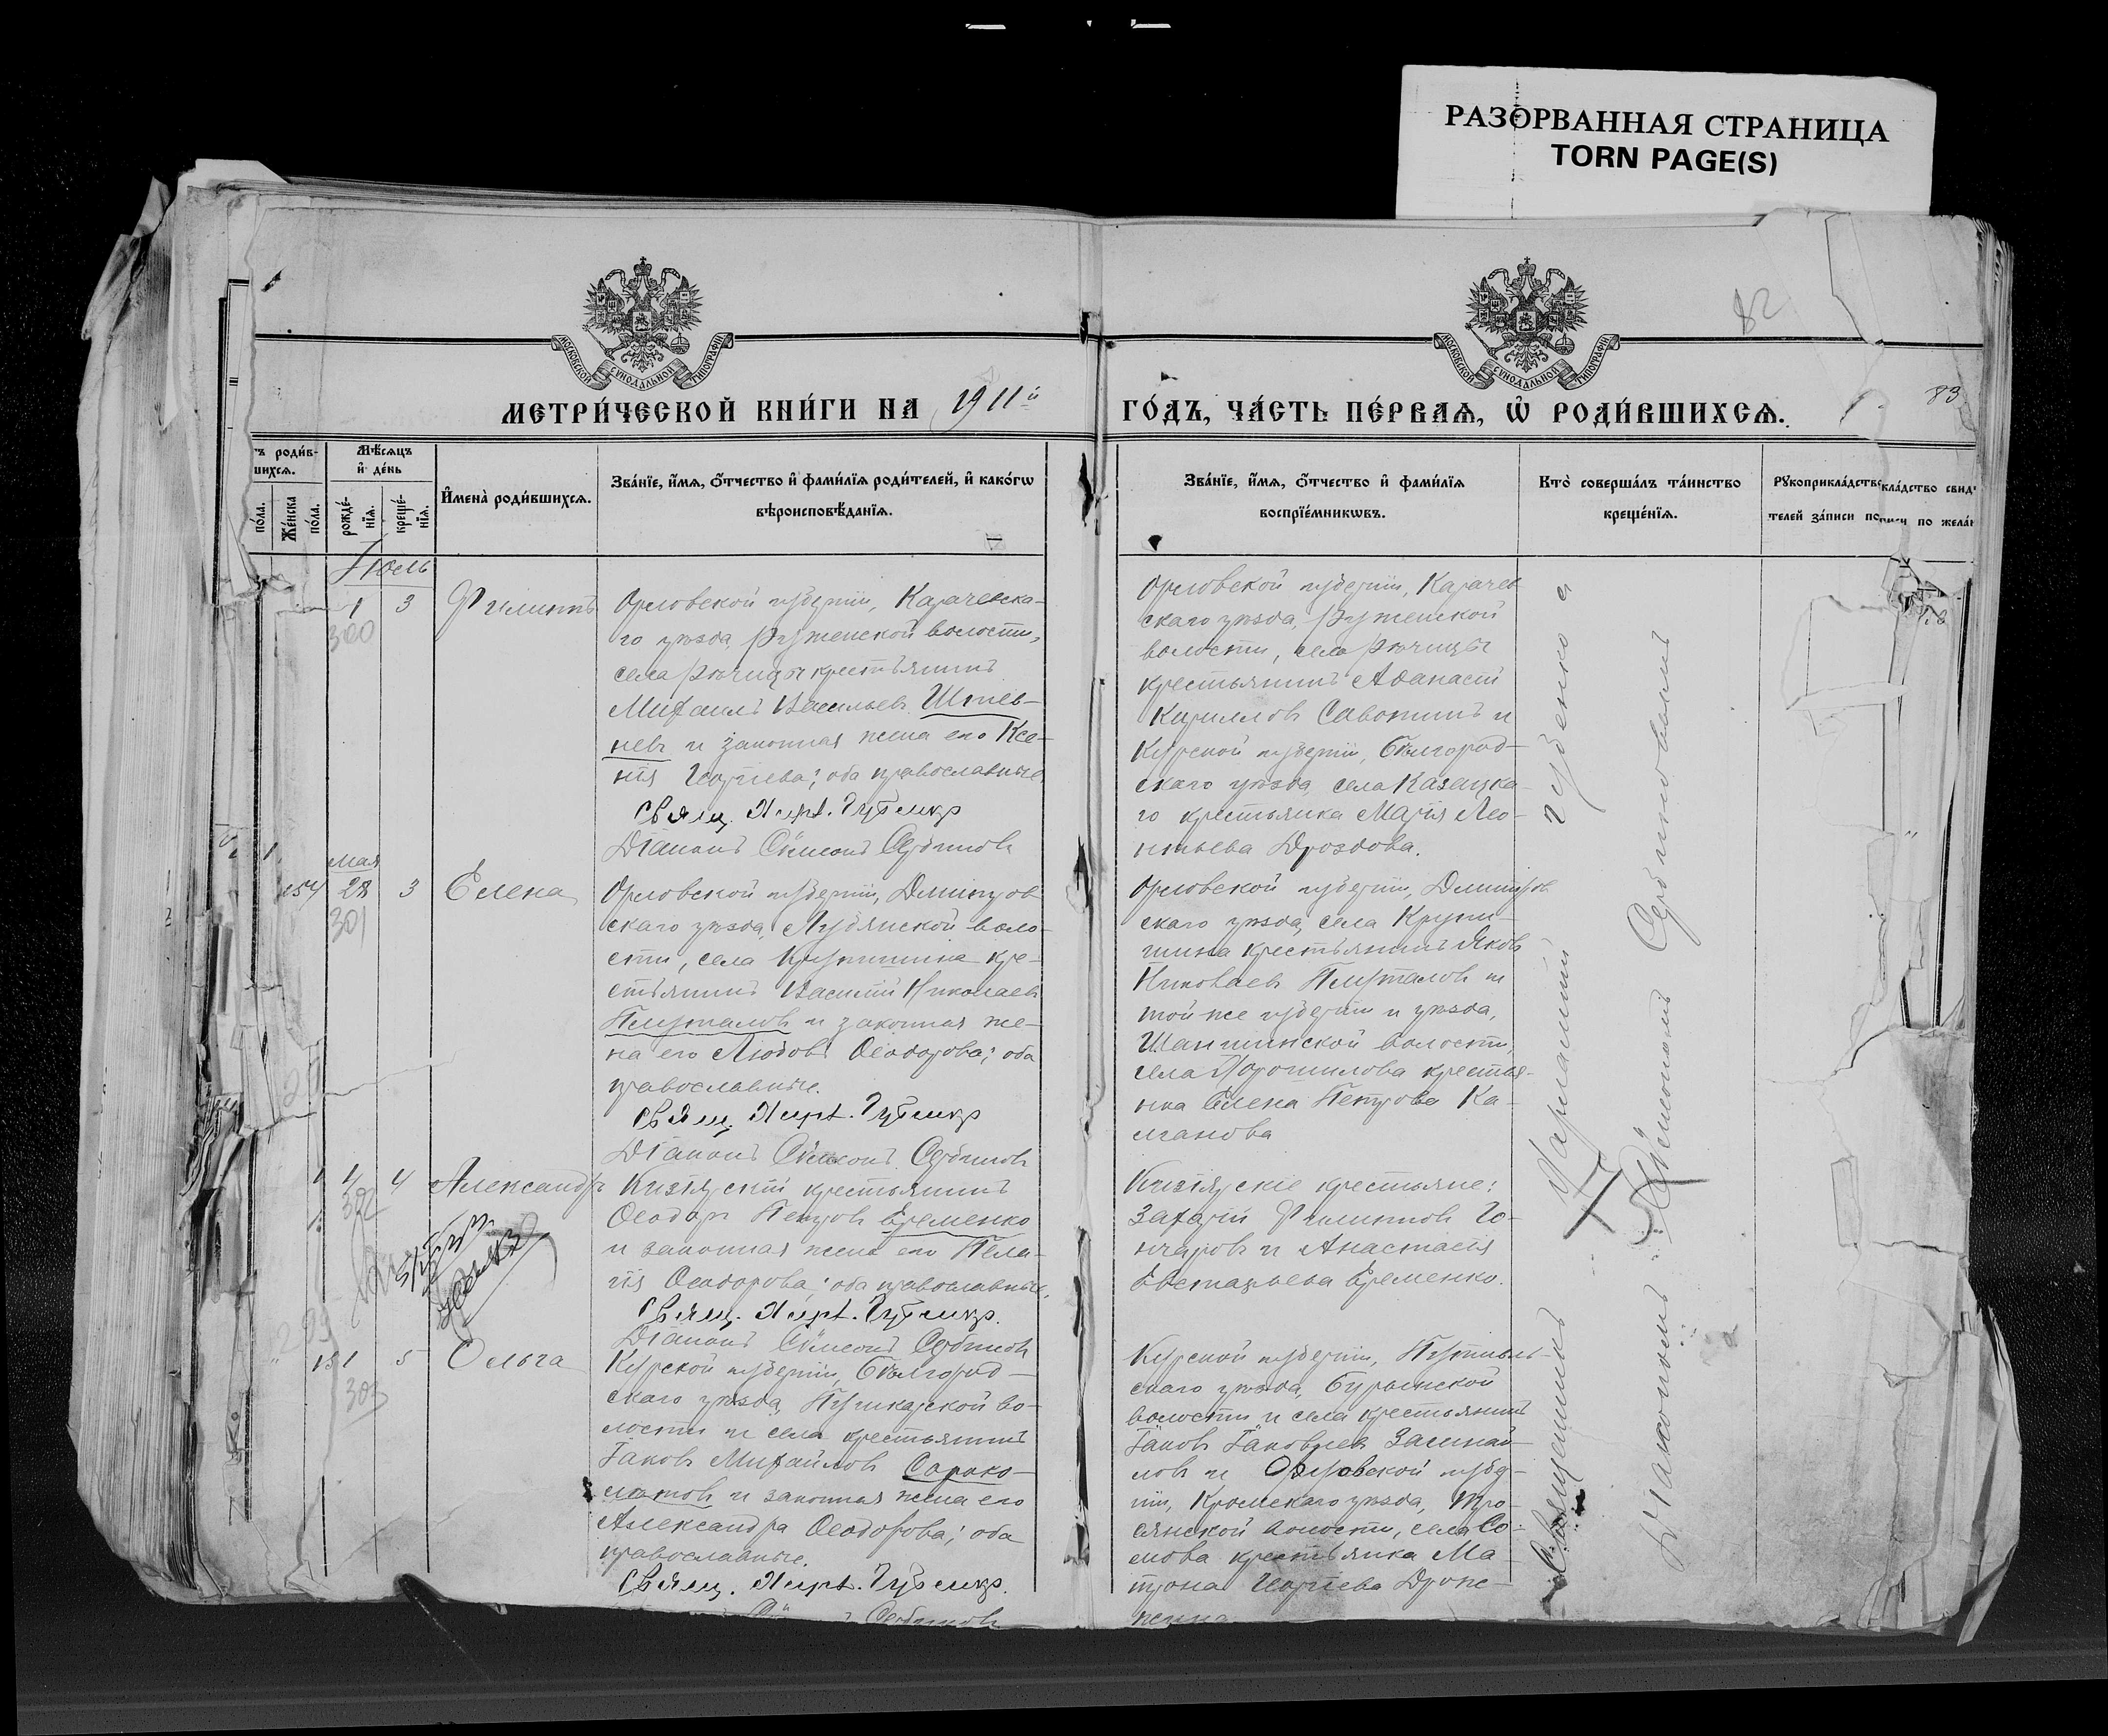 РАЗОРВАННАЯ СТРАНИЦА
TORN PAGE(S)
82
МОСКОВСКОЙ СѴНОДАЛЬНОЙ ТИПОГРАФІИ
МОСКОВСКОЙ СѴНОДАЛЬНОЙ ТИПОГРАФІИ
МЕТРИ́ЧЕСКОЙ КНИ́ГИ НА 1911й
ГО́ДЪ, ЧА́СТЬ ПЕ́РВАѦ, Ѡ҆ РОДИ́ВШИХСѦ.
83
тъ роди́в-
шихсѧ.
по́ла.
Же́нска
по́ла.
Мѣ́сѧцъ
и҆ де́нь
рожде́-
нїѧ.
креще́-
нїѧ.
И҆мена̀ роди́вшихсѧ.
Зва́нїе, и҆́мѧ, ѻ҆́тчество и҆ фами́лїѧ роди́телей, и҆ како́гѡ
вѣроисповѣ́данїѧ.
Зва́нїе, и҆́мѧ, ѻ҆́тчество и҆ фами́лїѧ
воспрїе́мникѡвъ.
Кто̀ соверша́лъ та́инство
креще́нїѧ.
Рꙋкоприкла́дство
кла́дство свид
телей за́писи по
по жела́н
Іюль
1 3 Филиппъ
300
Орловской губерніи, Карачевска-
го уѣзда, Руженской волости,
села Рѣчицы крестьянинъ
Михаилъ Васильевъ Штев-
невъ и законная жена его Ксе-
нія Георгіева; оба православные
Свящ. Харл. Губенко
Діаконъ Сѷмеонъ Сербиновъ
Орловской губерніи, Карачев-
скаго уѣзда, Руженской
волости, села Рѣчицы
крестьянинъ Аѳанасій
Кирилловъ Савонинъ и
Курской губерніи, Бѣлгород-
скаго уѣзда, села Казацка-
го крестьянка Марія Лео-
нтьева Дроздова.
мая
154 28 3 Елена
301
Орловской губерніи, Дмитров-
скаго уѣзда, Лубянской воло-
сти, села Крупышина кре-
стьянинъ Василій Николаевъ
Плуталовъ и законная же-
на его Любовь Ѳеодорова; оба
православные.
Свящ. Харл. Губенко
Діаконъ Сѷмеонъ Сербиновъ
Орловской губерніи, Дмитров-
скаго уѣзда, села Крупы-
шина крестьянинъ Яковъ
Николаевъ Плуталовъ и
той-же губерніи и уѣзда,
волости,
села Торошилова крестья-
нка Елена Петрова Ка-
лганова
1 4 Александръ
302
Кизлярскій крестьянинъ
Ѳеодоръ Петровъ Еременко
и законная жена его Пела-
гія Ѳеодорова; оба православные.
Свящ. Харл. Губенко.
Діаконъ Сѷмеонъ Сербиновъ
Кизлярскіе крестьяне:
Захарій Филипповъ Го-
нчаровъ и Анастасія
Евстафьева Еременко.
151 1 5 Ольга
303
Курской губерніи, Бѣлгород-
скаго уѣзда, Пушкарской во-
лости и села крестьянинъ
Іаковъ Михайловъ Сороко-
летовъ и законная жена его
Александра Ѳеодорова; оба
православные.
Свящ. Харл. Губенко.
Сербиновъ
Курской губерніи, Путивль-
скаго уѣзда, Бурынской
волости и села крестьянинъ
Іаковъ Іаковлевъ
и Орловской губер-
ніи, Кромскаго уѣзда, Тро-
снянской волости, села Со-
мова крестьянка Ма-
трона Георгіева
Священникъ Харлампій Губенко съ
Діакономъ Сѷмеономъ Сербиновымъ